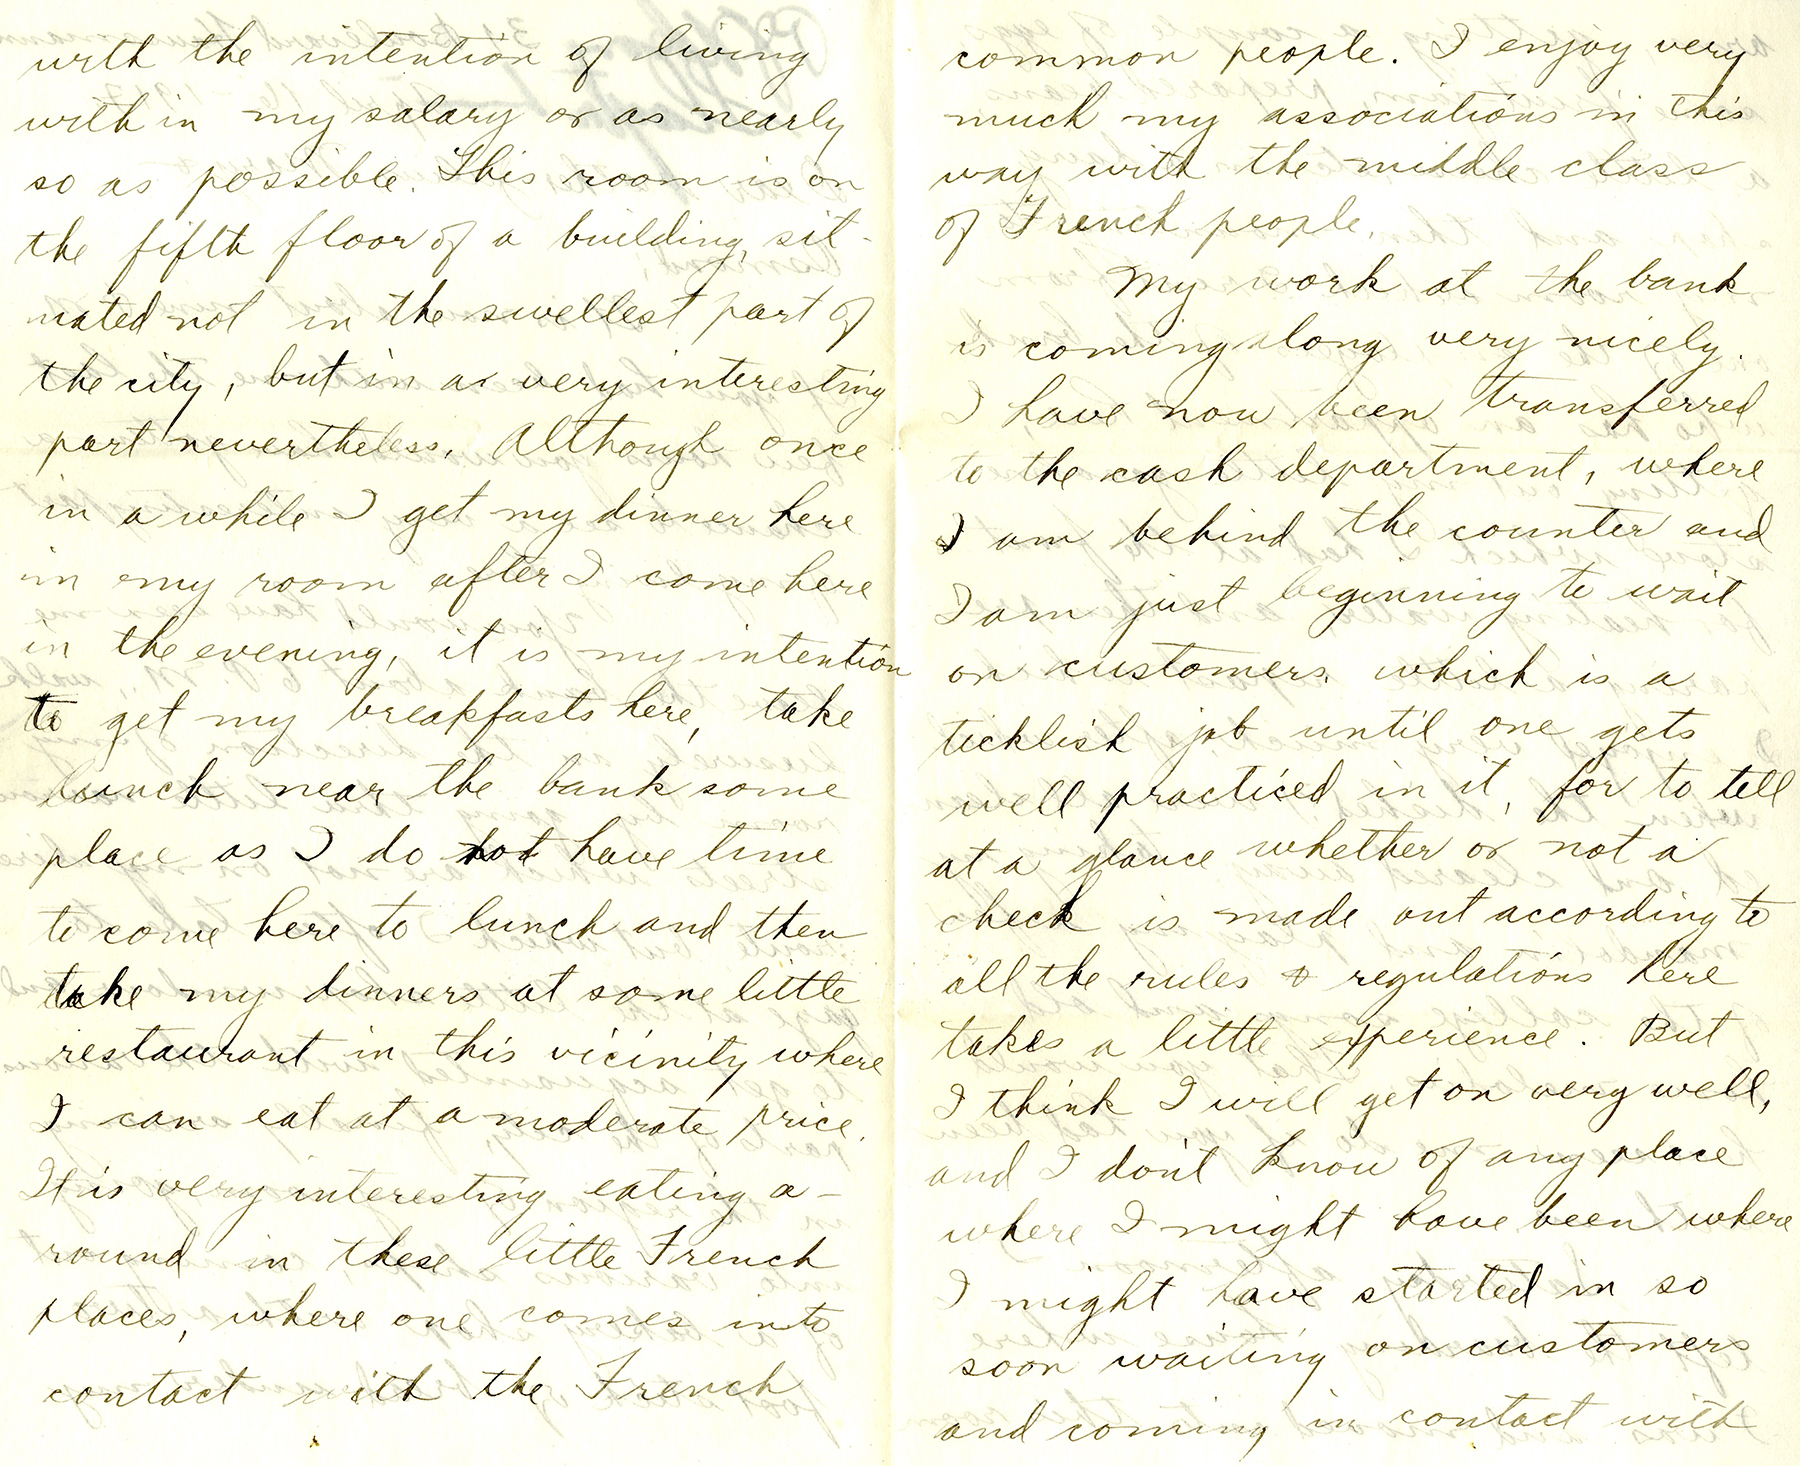 with the intention of living
within my salary or as nearly
so as possible. This room is on
the fifth floor of a building, sit-
uated not in the swellest part of
the city, but in a very interesting
part nevertheless. Although once
in a while I get my dinner here
in my room after I come here
in the evening, it is my intention
to get my breakfasts here, take
lunch near the bank some
place as I do not have time
to come here to lunch and then
take my dinners at some little
restaurant in this vicinity where
I can eat at a moderate price.
It is very interesting eating a-
round in these little French
places, where one comes into
contact with the French
common people. I enjoy very
much my associations in this
way with the middle class
of French people.
My work at the bank
is coming along very nicely.
I have now been transferred
to the cash department, where
I am behind the counter and
I am just beginning to wait
on customers. which is a
ticklish job until one gets
well practiced in it, for to tell
at a glance whether or not a
check is made out according to
all the rules & regulations here
takes a little experience. But
I think I will get on very well,
and I don't know of any place
where I might have been where
I might have started in so
soon waiting on customers
and coming in contact with